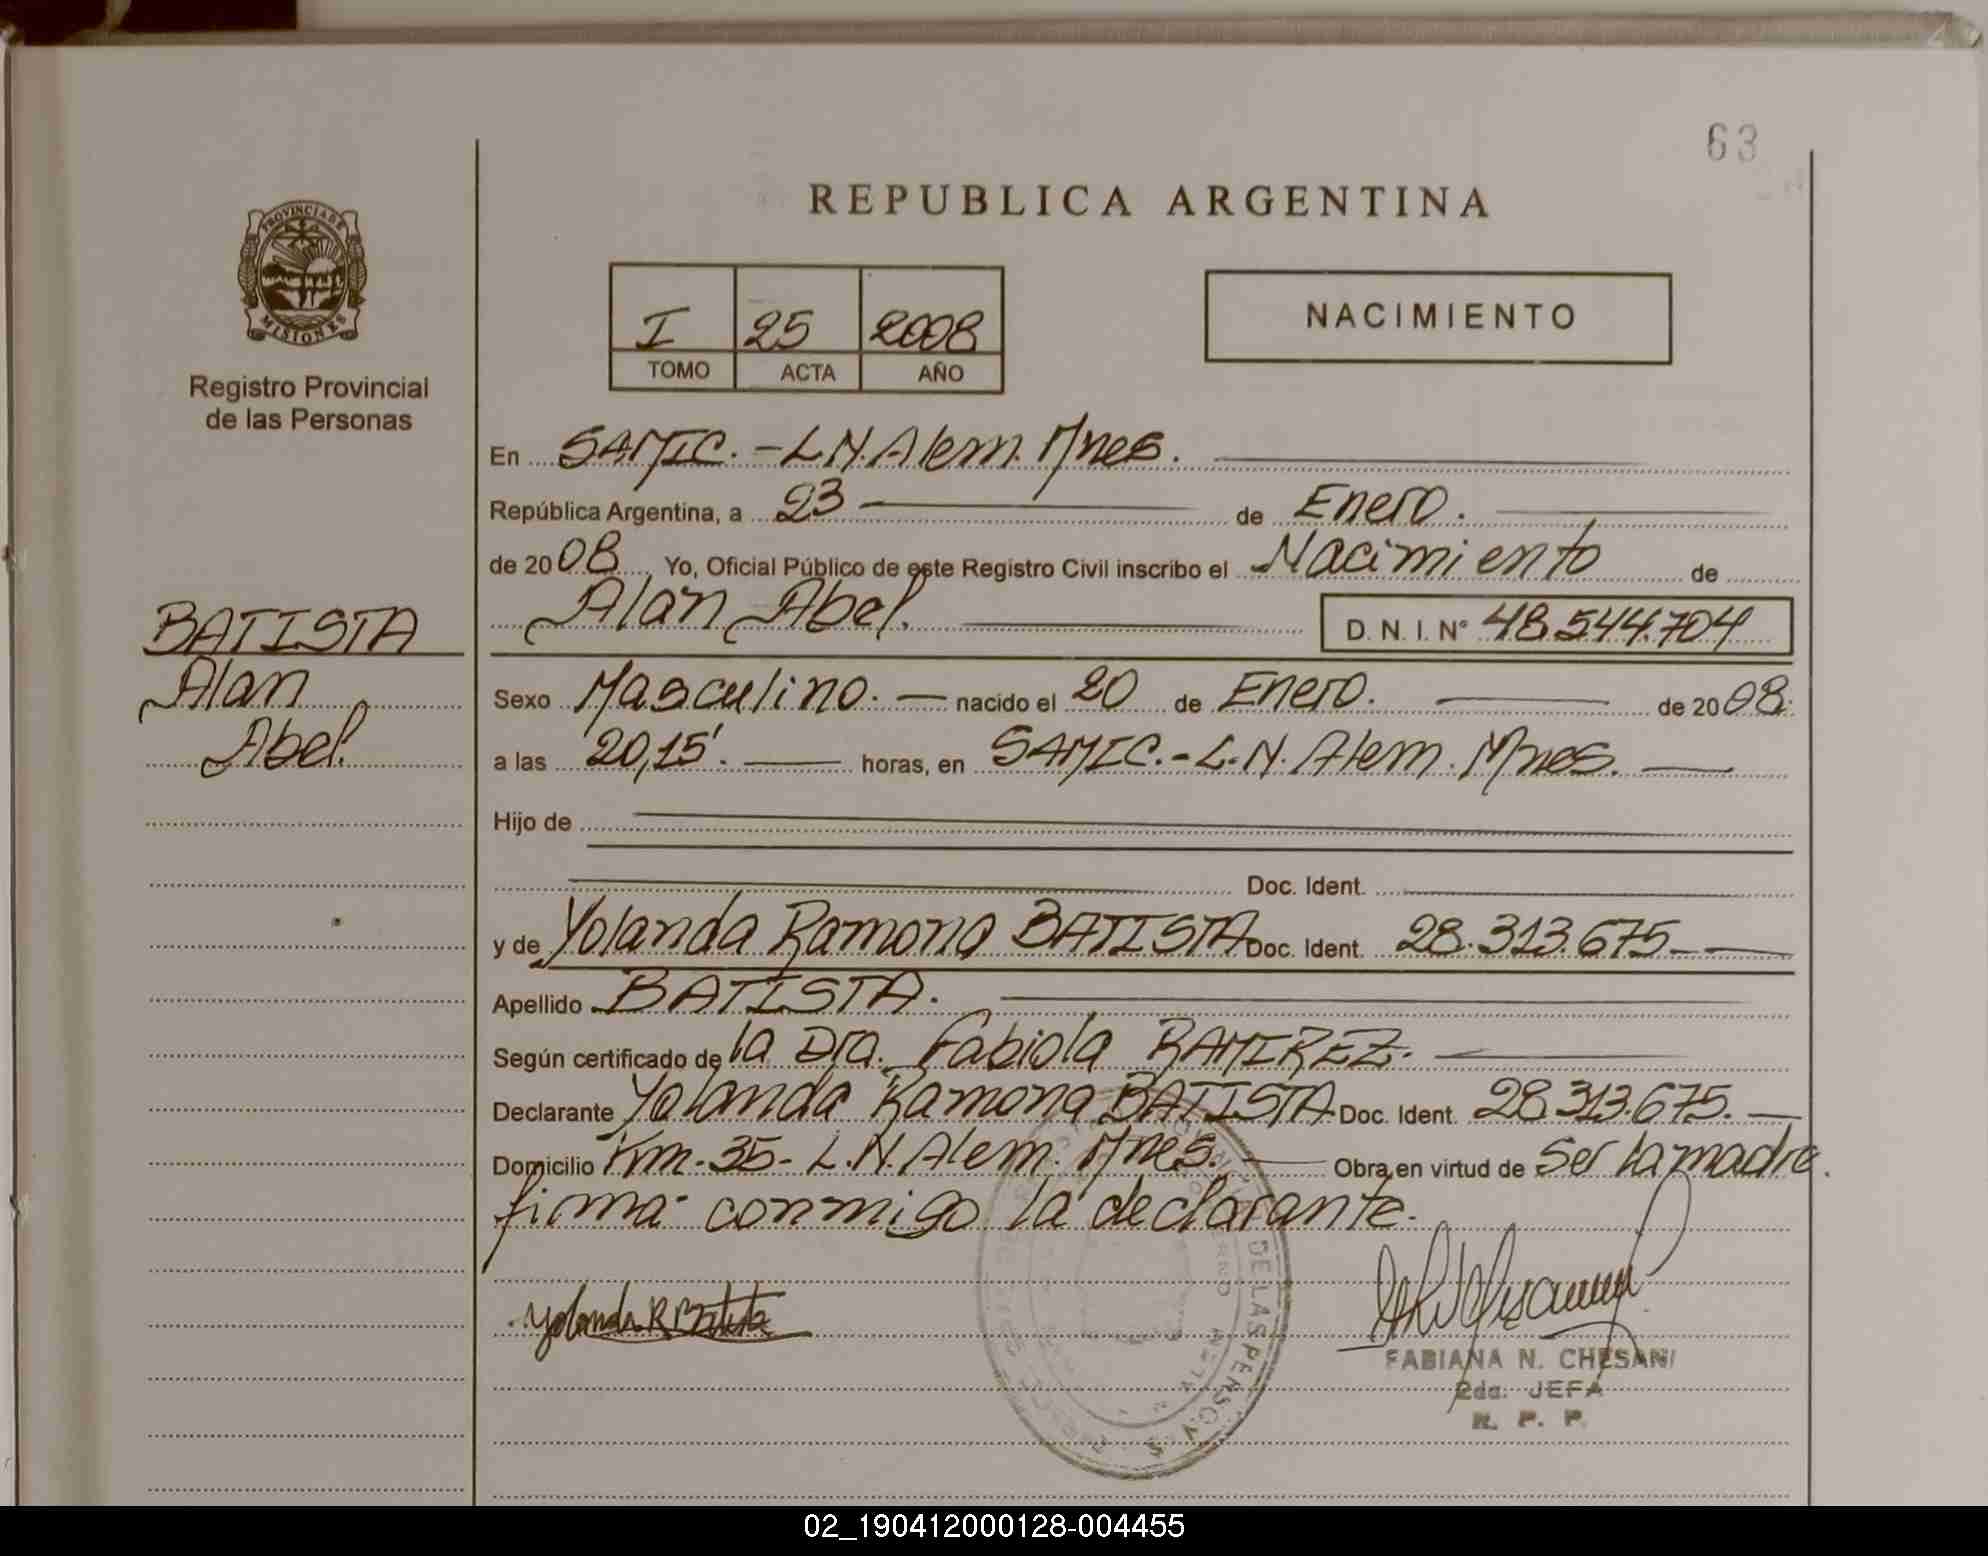 63
REPUBLICA ARGENTINA
PROVINCIA DE
MISIONES
Registro Provincial
de las Personas
I 25 2008
TOMO ACTA AÑO
NACIMIENTO
En SAMIC.-L.N.Alem. Mnes.
República Argentina, a 23 de Enero.
de 20 08 Yo, Oficial Público de este Registro Civil inscribo el Nacimiento de
Alan Abel. D. N. I. Nº 48.544.704
BATISTA
Alan
Abel.
Sexo Masculino. nacido el 20 de Enero. de 20 08.
a las 20,15'. horas, en SAMIC.-L.N. Alem. Mnes.
Hijo de
Doc. Ident.
y de Yolanda Ramona BATISTA Doc. Ident. 28.313.675
Apellido BATISTA.
Según certificado de la Dra. Fabiola RAMIREZ.
Declarante Yolanda Ramona BATISTA Doc. Ident. 28.313.675.
Domicilio Km.35- L.N.Alem. Mnes. Obra en virtud de ser la madre.
firma conmigo la declarante.
Yolanda R Batista
FABIANA N. CHESANI
2da. JEFA
R. P. P.
DE LAS PERSO
02_190412000128-004455